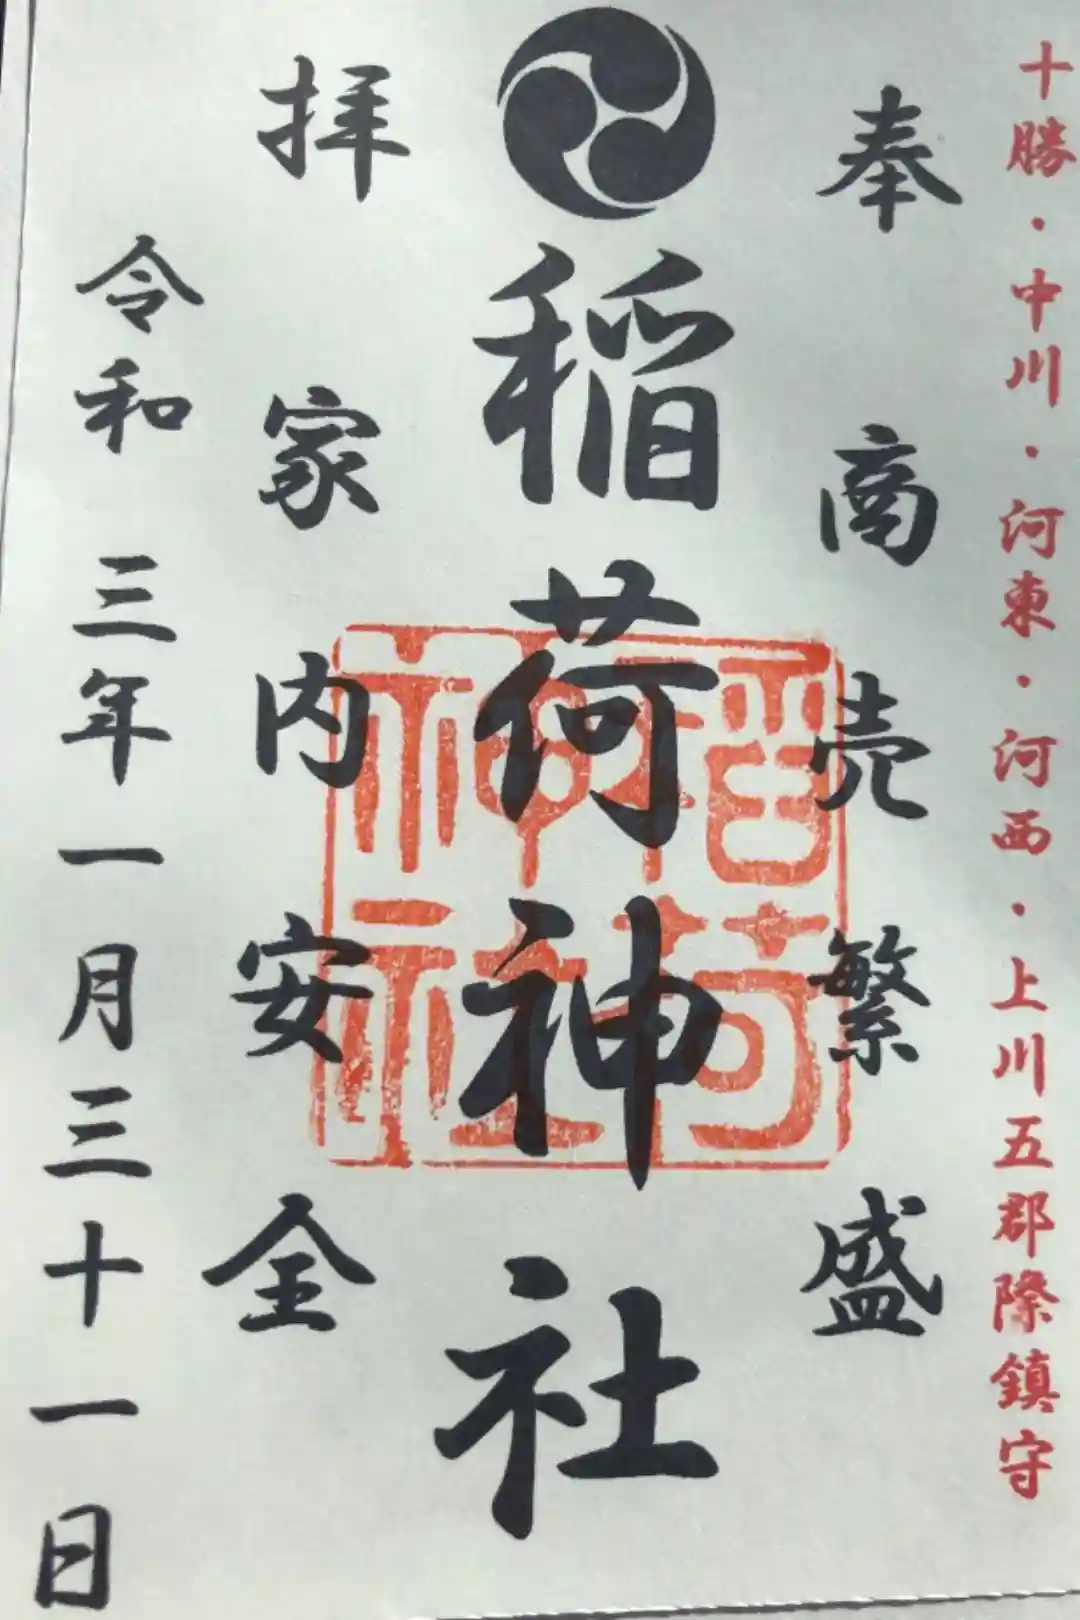 十勝・中川・河東・河西・上川五郡際鎮守
奉 商売繁盛
稲荷神社
拝 家内安全
令和三年一月三十一日
稲荷
神社